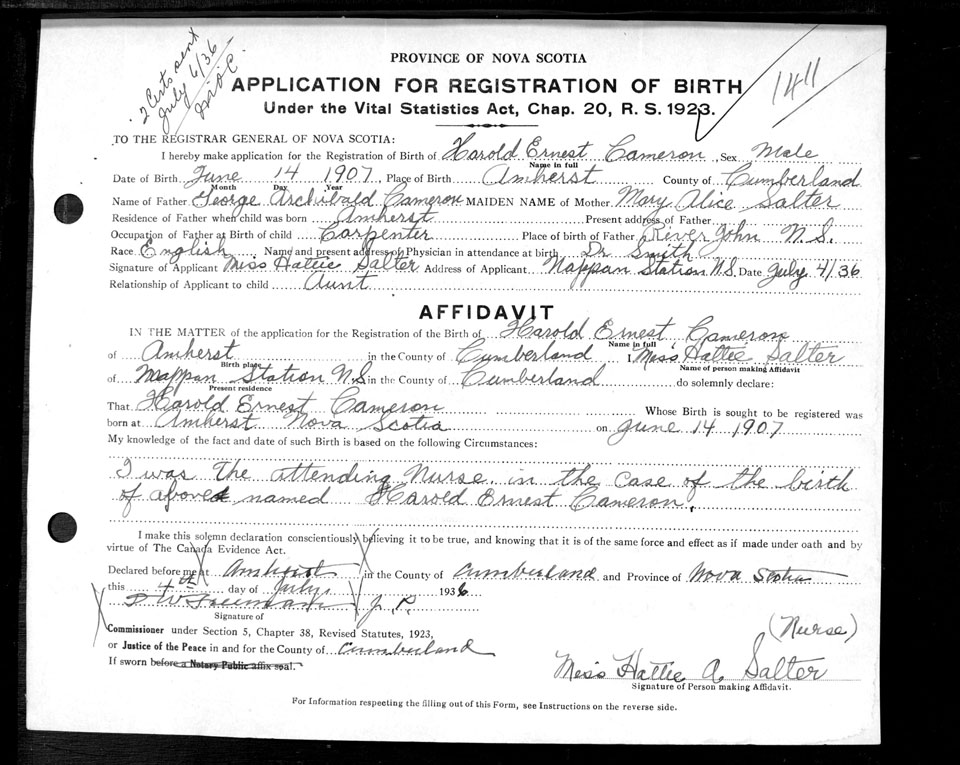 2 Certs sent
July 6/36
1411
PROVINCE OF NOVA SCOTIA
APPLICATION FOR REGISTRATION OF BIRTH
Under the Vital Statistics Act, Chap. 20, R. S. 1923.
TO THE REGISTRAR GENERAL OF NOVA SCOTIA:
I hereby make application for the Registration of Birth of Harold Ernest Cameron Sex Male
Name in full
Date of Birth June 14 1907 Place of Birth Amherst County of Cumberland
Month Day Year
Name of Father George Archibald Cameron MAIDEN NAME of Mother Mary Alice Salter
Residence of Father when child was born Amherst Present address of Father
Occupation of Father at Birth of child Carpenter Place of birth of Father River John N.S.
Race English Name and present address of Physician in attendance at birth Dr Smith
Signature of Applicant Miss Hattie Salter Address of Applicant Nappan Station N.S. Date July 4/36
Relationship of Applicant to child Aunt
AFFIDAVIT
IN THE MATTER of the application for the Registration of the Birth of Harold Ernest Cameron
Name in full
of Amherst in the County of Cumberland I, Miss Hattie Salter
Birth place Name of person making Affidavit
of Nappan Station N.S in the County of Cumberland do solemnly declare:
Present residence
That Harold Ernest Cameron Whose Birth is sought to be registered was
born at Amherst Nova Scotia on June 14 1907
My knowledge of the fact and date of such Birth is based on the following Circumstances:
I was the attending Nurse in the case of the birth
of above named Harold Ernest Cameron.
I make this solemn declaration conscientiously believing it to be true, and knowing that it is of the same force and effect as if made under oath and by
virtue of The Canada Evidence Act.
Declared before me at Amherst in the County of Cumberland and Province of Nova Scotia
this 4th day of July 1936
Freeman J. P.
Signature of
Commissioner under Section 5, Chapter 38, Revised Statutes, 1923,
or Justice of the Peace in and for the County of Cumberland
If sworn before a Notary Public affix seal.
(Nurse)
Miss Hattie A. Salter
Signature of Person making Affidavit.
For Information respecting the filling out of this Form, see Instructions on the reverse side.